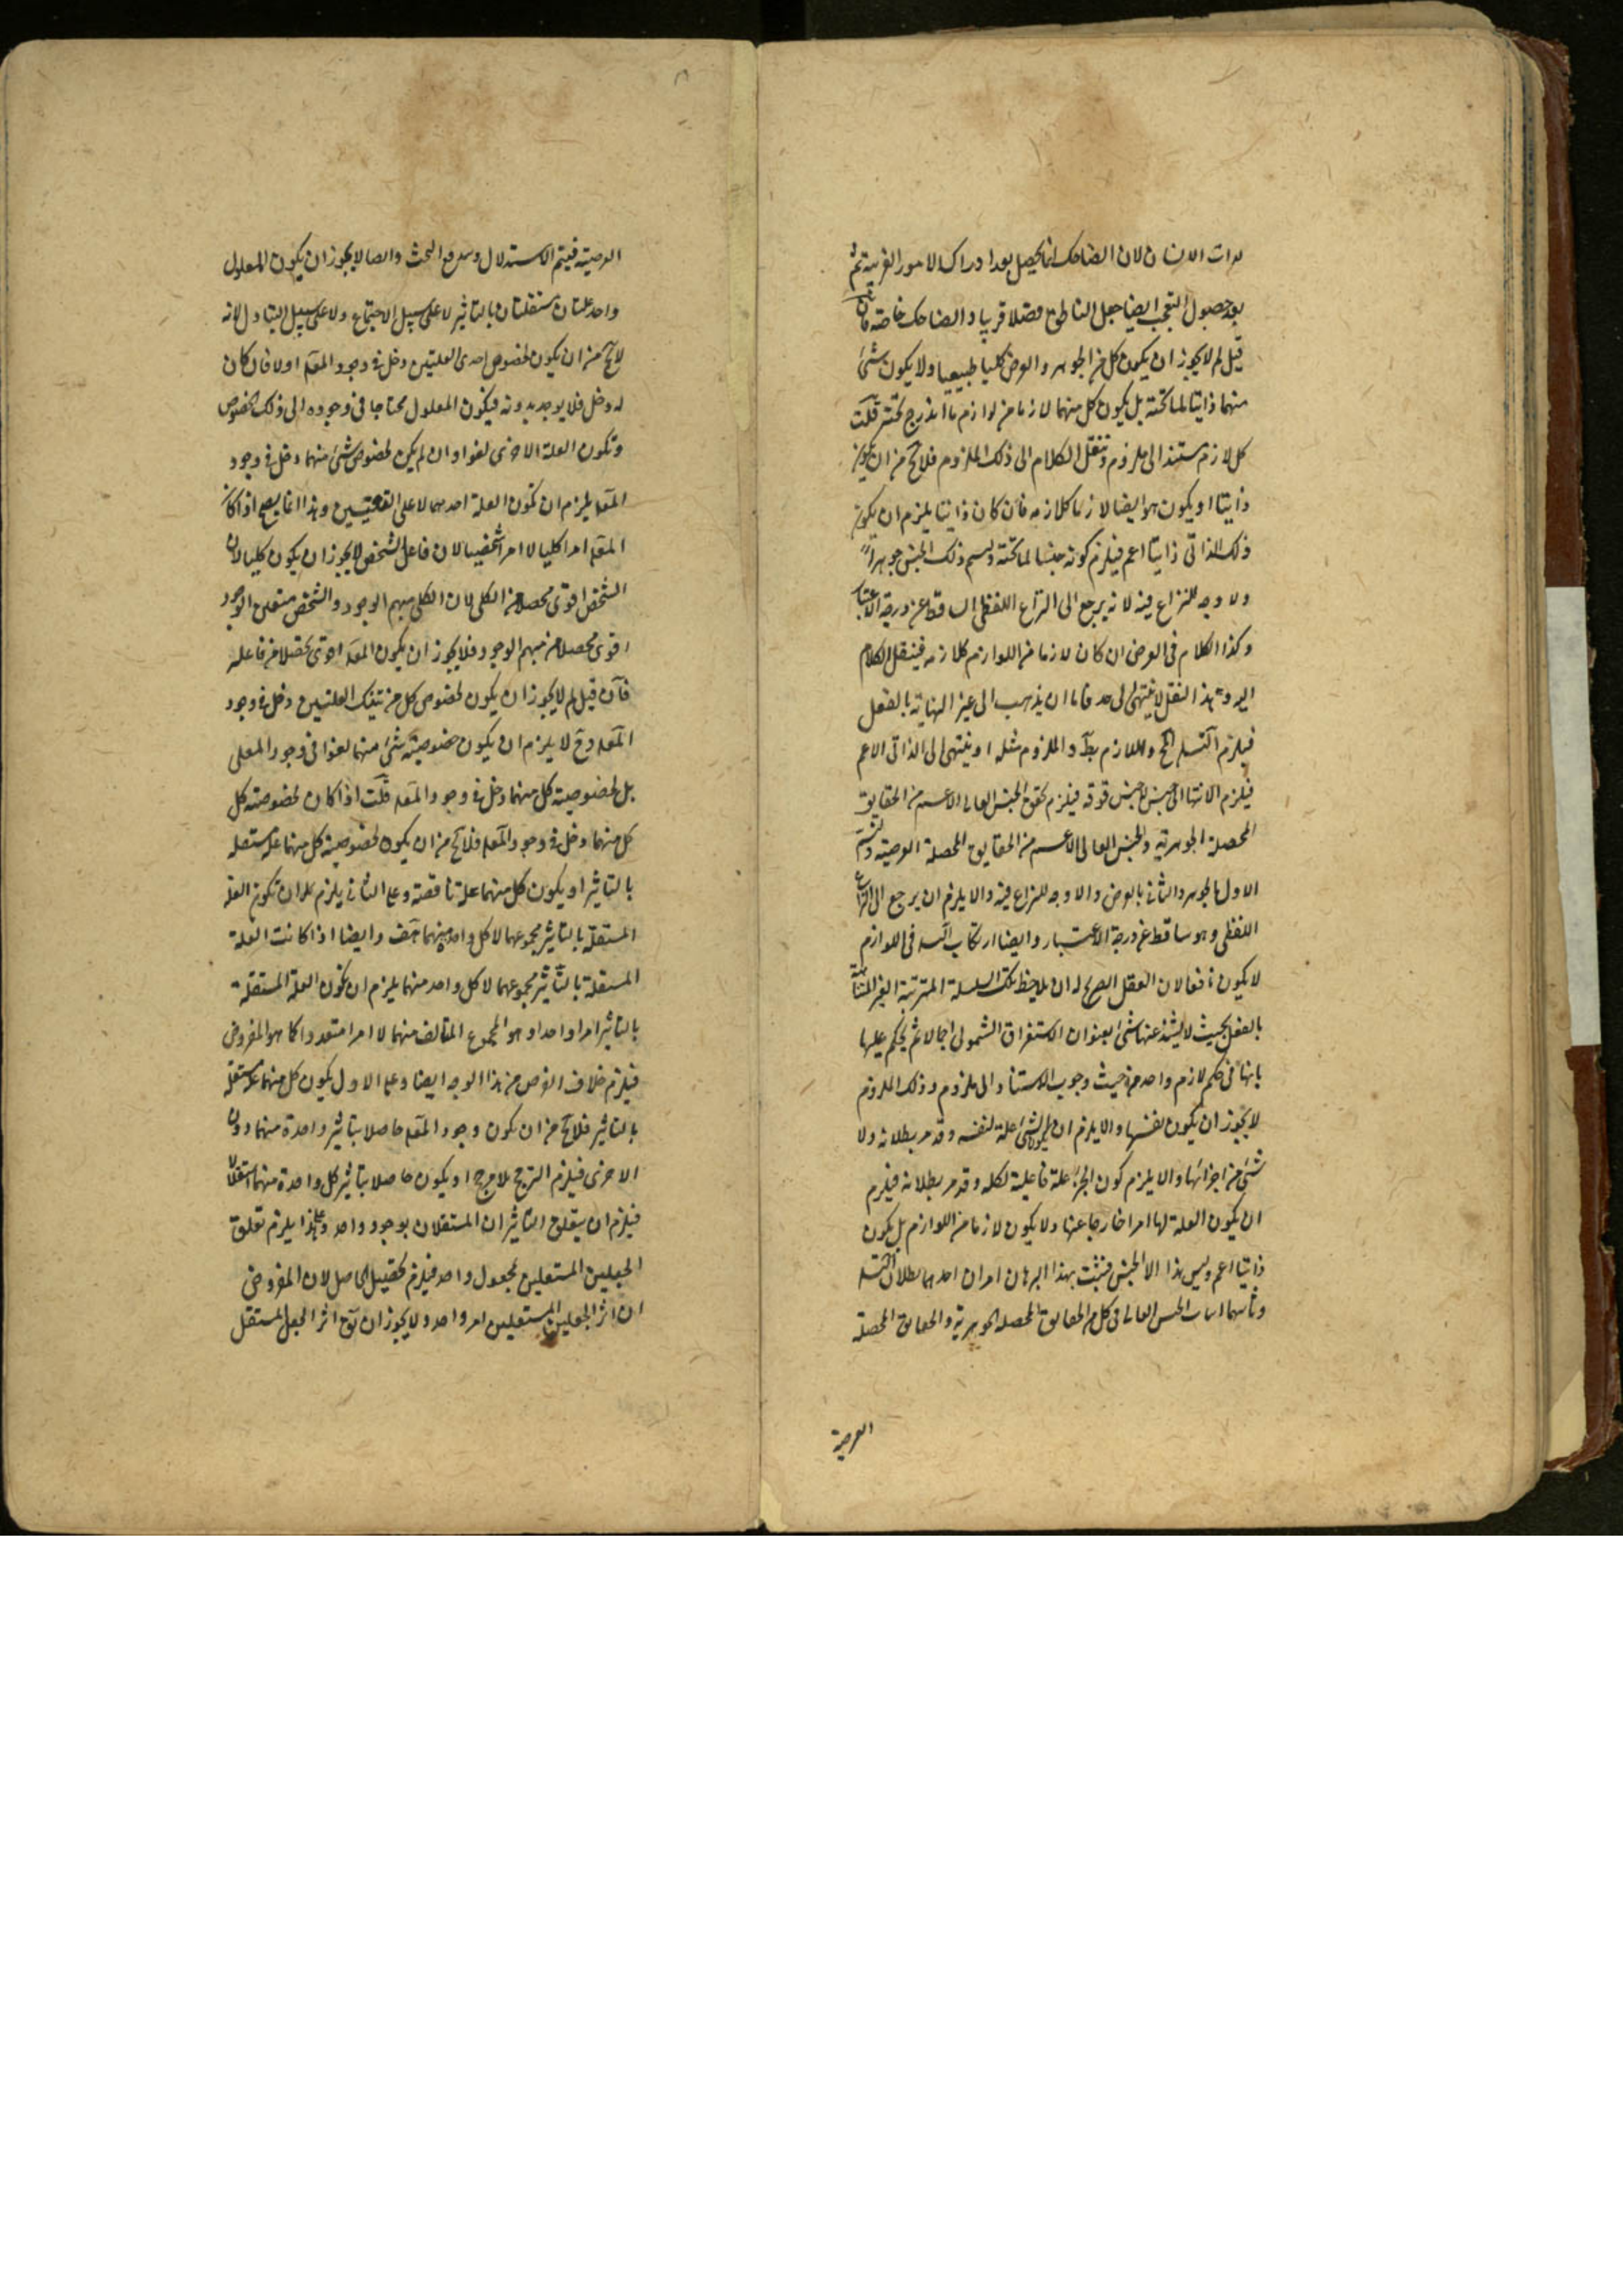 لذات الانسان لان الضاحك انما يحصل بعد ادراك الامور الغريبة ثم
بعد حصول التعجب ايضا جعل الناطق فصلا قريبا والضاحك خاصة فان
قيل لم لا يجوز ان يكون كل من الجوهر والعرض كليا طبيعيا ولا يكون شئ
منهما ذاتيا لما تحته بل يكون كل منهما لازما من لوازم ما اندرج تحته قلت
كل لازم مستند الى ملزوم وننقل الكلام الى ذلك الملزوم فلا يخ من ان يكون
ذاتيا او يكون هو ايضا لازما كلازمه فان كان ذاتيا يلزم ان يكون
ذلك الذاتى ذاتيا اعم فيلزم كونه جنسا لما تحته ويسم ذلك الجنس جوهرا
ولا وجه للنزاع فيه لانه يرجع الى النزاع اللفظى الساقط عن درجة الاعتبار
وكذا الكلام فى العرض ان كان لازما من اللوازم كلازمه فينقل الكلام
اليه وهذا النقل لا ينتهى الى حد فاما ان يذهب الى غير النهاية بالفعل
فيلزم التسلسل المح واللازم بط والملزوم مثله او ينتهى الى الذاتى الاعم
فيلزم الانتهاء الى جنس لا جنس فوقه فيلزم تحقق الجنس العالى الاعم من الحقايق
المحصلة الجوهرية والجنس العالى الاعم من الحقايق المحصلة العرضية ويسم
الاول بالجوهر والثانى بالعرض والا وجه للنزاع فيه والا يلزم ان يرجع الى النزاع
اللفظى وهو ساقط عن درجة الاعتبار وايضا ارتكاب التسلسل فى اللوازم
لا يكون نافعا لان العقل الصريح له ان يلاحظ تلك السلسلة المترتبة الغير المتناهية
بالفعل بحيث لا يشذ عنها شئ بعنوان الاستغراق الشمولى اجمالا ثم يحكم عليها
بانها فى حكم لازم واحد من حيث وجوب الاستناد الى ملزوم وذلك الملزوم
لا يجوز ان يكون نفسها والا يلزم ان يكون الشئ علة لنفسه وقد مر بطلانه ولا
شئ من اجزائها والا يلزم كون الجزء علة فاعلية لكله وقد مر بطلانه فيلزم
ان يكون العلة لها امرا خارجا عنها ولا يكون لازما من اللوازم بل يكون
ذاتيا اعم وليس هذا الا الجنس فيثبت بهذا البرهان امران احدهما بطلان التسلسل
وثانيهما اثبات الجنس العالى فى كل من الحقايق المحصلة الجوهرية والحقايق المحصلة
العرضية
العرضية فيتم الاستدلال ويندفع البحث وايضا لا يجوز ان يكون المعلول
واحد علتان مستقلتان بالتاثير لا على سبيل الاجتماع ولا على سبيل التبادل لانه
لا يخ من ان يكون لخصوص احدى العلتين دخل فى وجود المعلول اولا فان كان
له دخل فلا يوجد بدونه فيكون المعلول محتاجا فى وجوده الى ذلك الخصوص
وتكون العلة الاخرى لغوا وان لم يكن لخصوص شئ منهما دخل فى وجود
المعلول يلزم ان تكون العلة احدهما لا على التعيين وهذا انما يصح اذا كان
المعلول امرا كليا لا امرا شخصيا لان فاعل الشخص لا يجوز ان يكون كليا لان
الشخص اقوى تحصلا من الكلى لان الكلى مبهم الوجود والشخص متعين الوجود
اقوى تحصلا من مبهم الوجود فلا يجوز ان يكون المعلول اقوى تحصلا من فاعله
فان قيل لم لا يجوز ان يكون لخصوص كل من تينك العلتين دخل فى وجود
المعلول وح لا يلزم ان يكون خصوصية شئ منهما لغوا فى وجود المعلول
بل لخصوصية كل منهما دخل فى وجود المعلول قلت اذا كان لخصوصية كل
كل منهما دخل فى وجود المعلول فلا يخ من ان يكون لخصوصية كل منهما علة مستقلة
بالتاثير او يكون كل منهما علة ناقصة وعلى الثانى يلزم ان تكون العلة
المستقلة بالتاثير مجموعهما لا كل واحد منهما هف وايضا اذا كانت العلة
المستقلة بالتاثير مجموعهما لا كل واحد منهما يلزم ان تكون العلة المستقلة
بالتاثير امرا واحدا وهو المجموع المتالف منهما لا امرا متعددا كما هو المفروض
فيلزم خلاف الفرض من هذا الوجه ايضا وعلى الاول يكون كل منهما علة مستقلة
بالتاثير فلا يخ من ان يكون وجود المعلول حاصلا بتاثير واحدة منهما دون
الاخرى فيلزم الترجح بلا مرجح او يكون حاصلا بتاثير كل واحدة منهما استقلالا
فيلزم ان يتعلق التاثيران المستقلان بوجود واحد وعلى هذا يلزم تعلق
الجعلين المستقلين بمجعول واحد فيلزم تحصيل الحاصل لان المفروض
ان اثر الجعلين المستقلين امر واحد ولا يجوز ان يكون ح اثر الجعل المستقل